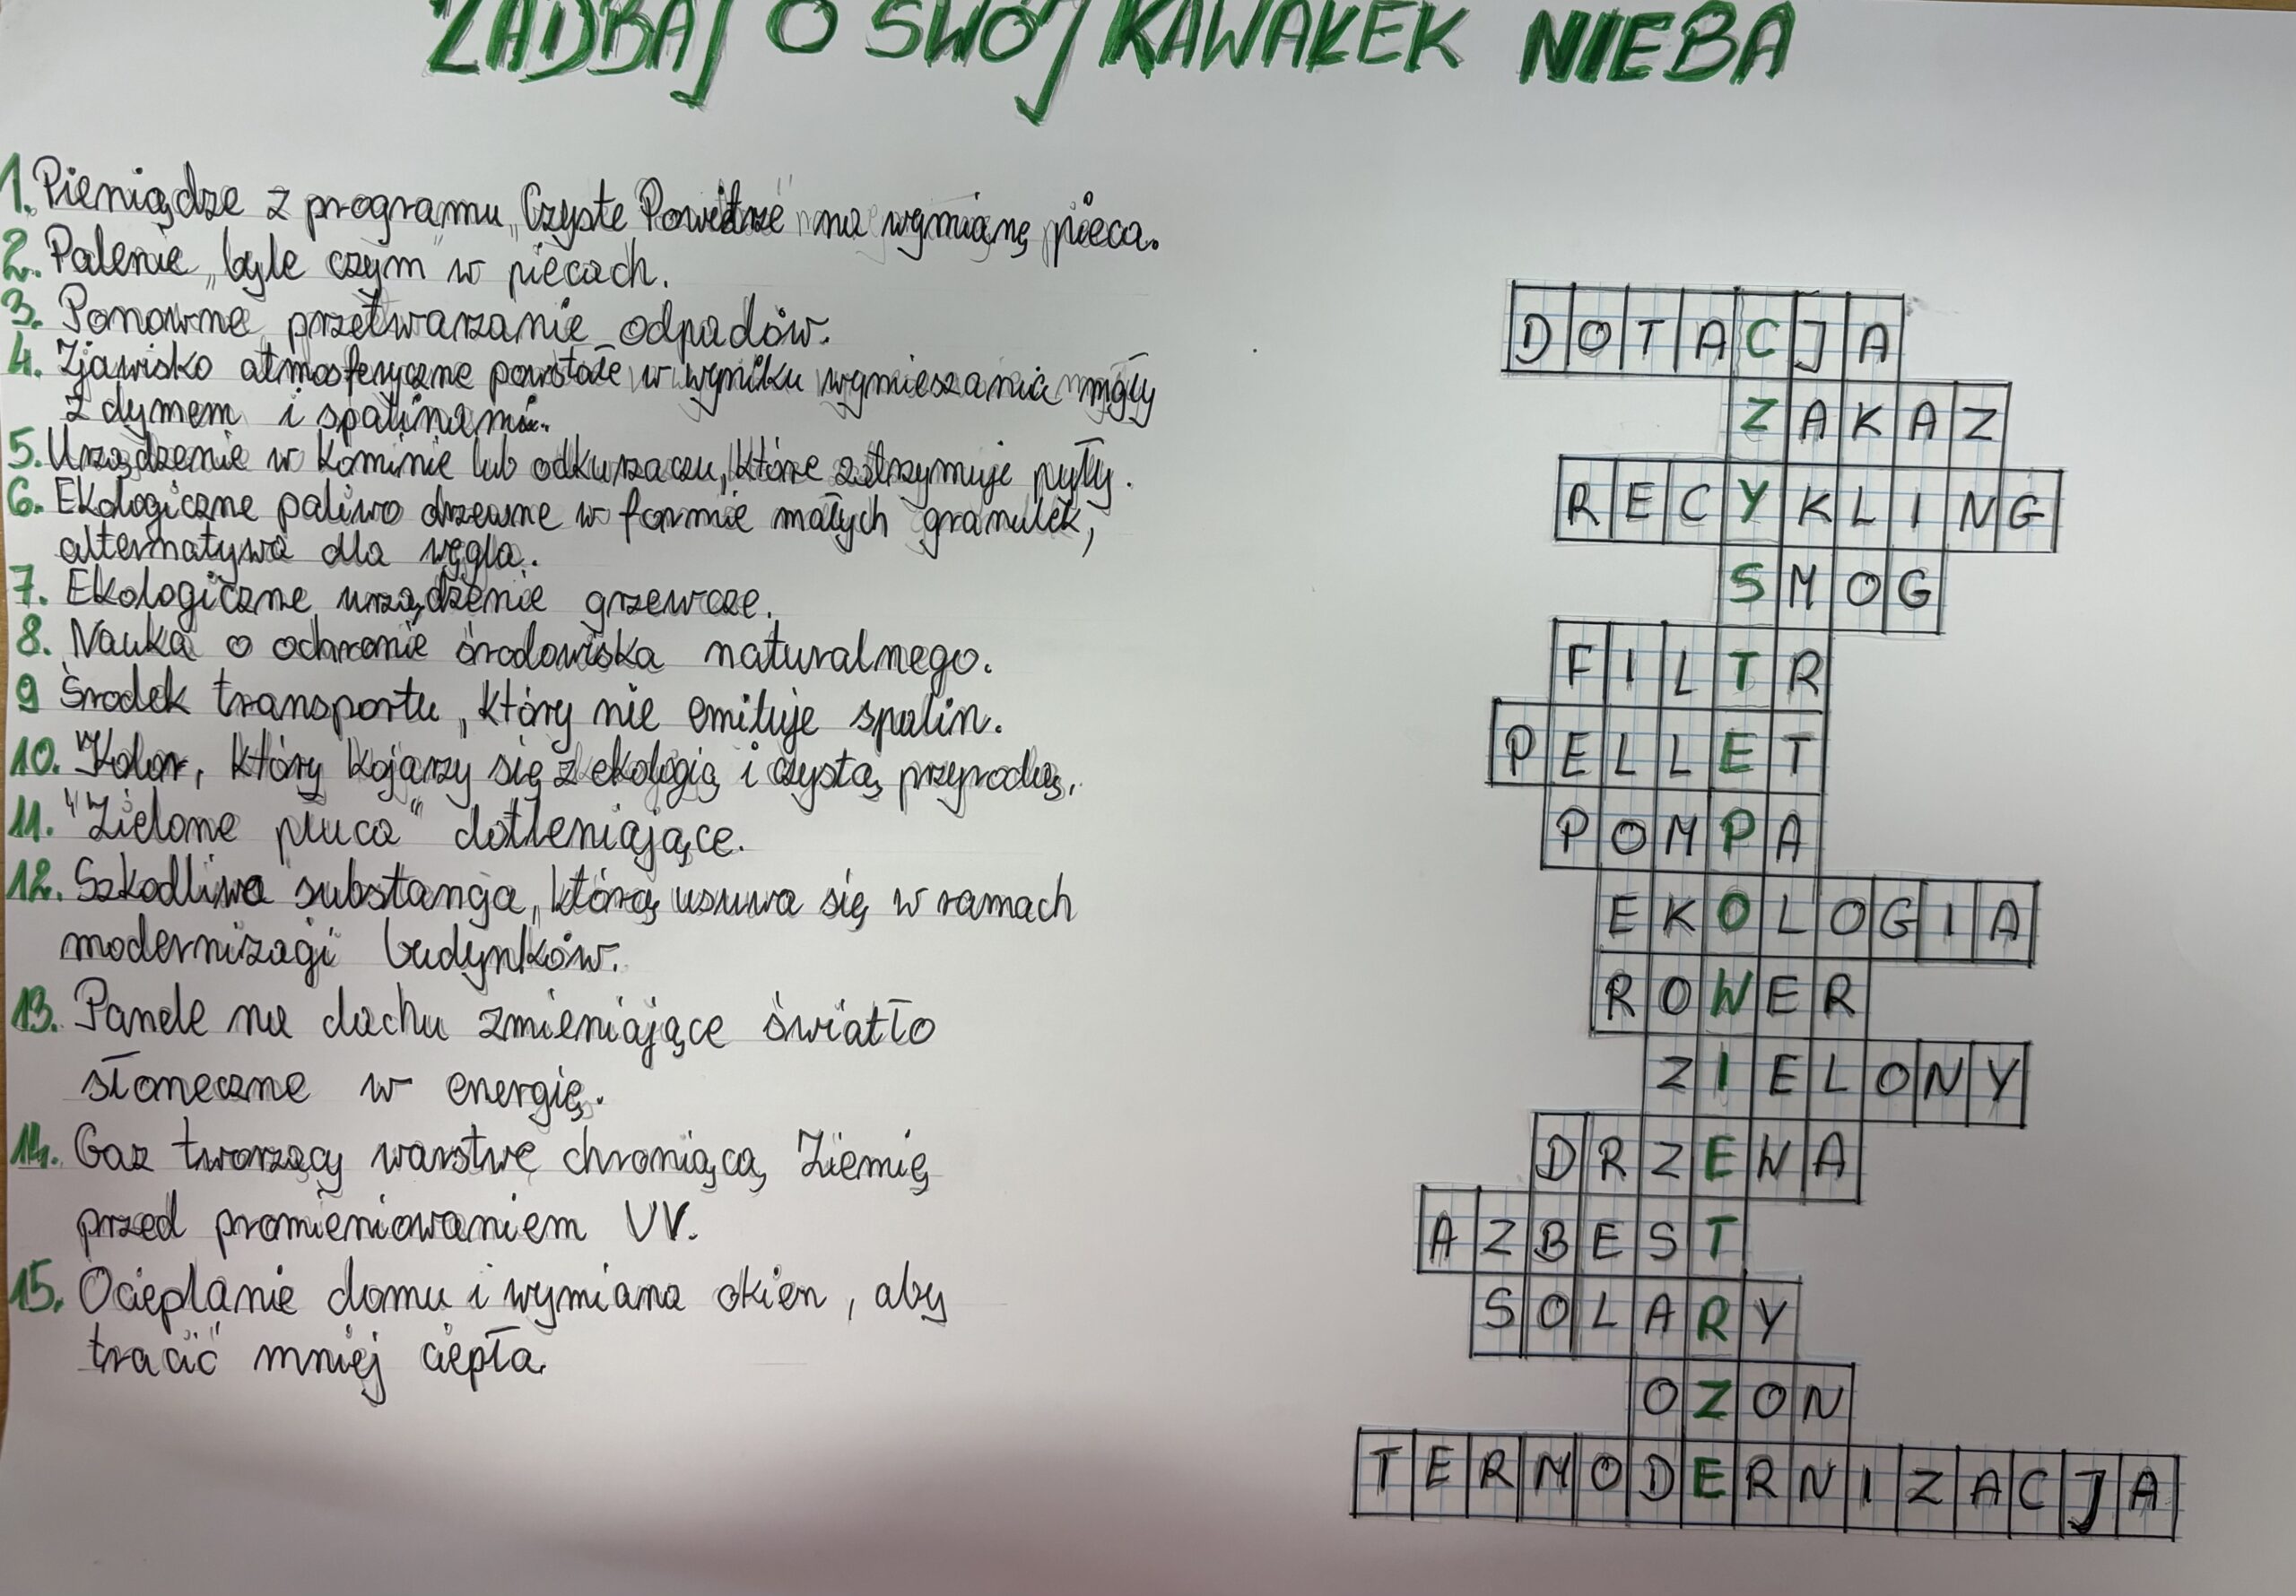 ZADBAJ O SWÓJ KAWAŁEK NIEBA
1. Pieniądze z programu „Czyste Powietrze" na wymianę pieca.
2. Palenie „byle czym" w piecach.
3. Ponowne przetwarzanie odpadów.
4. Zjawisko atmosferyczne powstałe w wyniku wymieszania mgły
z dymem i spalinami.
5. Urządzenie w kominie lub odkurzaczu, które zatrzymuje pyły.
6. Ekologiczne paliwo drzewne w formie małych granulek,
alternatywa dla węgla.
7. Ekologiczne urządzenie grzewcze.
8. Nauka o ochronie środowiska naturalnego.
9 Środek transportu, który nie emituje spalin.
10. Kolor, który kojarzy się z ekologią i czystą przyrodą.
11. "Zielone płuca" dotleniające.
12. Szkodliwa substancja, którą usuwa się w ramach
modernizacji budynków.
13. Panele na dachu zmieniające światło
słoneczne w energię.
14. Gaz tworzący warstwę chroniącą Ziemię
przed promieniowaniem UV.
15. Ocieplanie domu i wymiana okien, aby
tracić mniej ciepła.
DOTACJA
ZAKAZ
RECYKLING
SMOG
FILTR
PELLET
POMPA
EKOLOGIA
ROWER
ZIELONY
DRZEWA
AZBEST
SOLARY
OZON
TERMODERNIZACJA